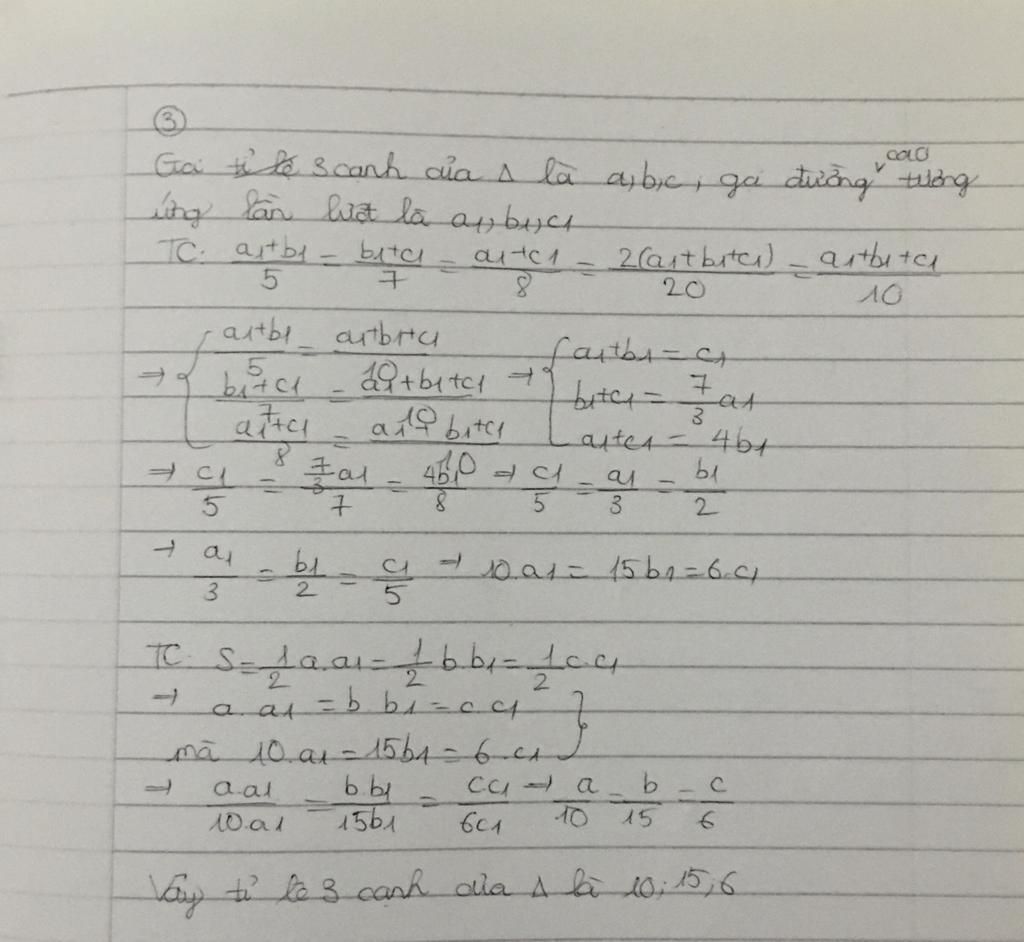 ③
Gọi tỉ lệ 3 cạnh của Δ là a,b,c, gọi đường cao tương
ứng lần lượt là a1, b1, c1
TC: (a1+b1)/5 = (b1+c1)/7 = (a1+c1)/8 = 2(a1+b1+c1)/20 = (a1+b1+c1)/10
→ { (a1+b1)/5 = (a1+b1+c1)/10 → { a1+b1 = c1
(b1+c1)/7 = (a1+b1+c1)/10 b1+c1 = 7/3 a1
(a1+c1)/8 = (a1+b1+c1)/10 a1+c1 = 4b1
→ c1/5 = (7/3 a1)/7 = 4b1/8 → c1/5 = a1/3 = b1/2
→ a1/3 = b1/2 = c1/5 → 10.a1 = 15b1 = 6.c1
TC: S = 1/2 a.a1 = 1/2 b.b1 = 1/2 c.c1
→ a.a1 = b.b1 = c.c1 }
mà 10.a1 = 15b1 = 6.c1
→ a.a1/10.a1 = b.b1/15b1 = cc1/6c1 → a/10 = b/15 = c/6
Vậy tỉ lệ 3 cạnh của Δ là 10; 15; 6